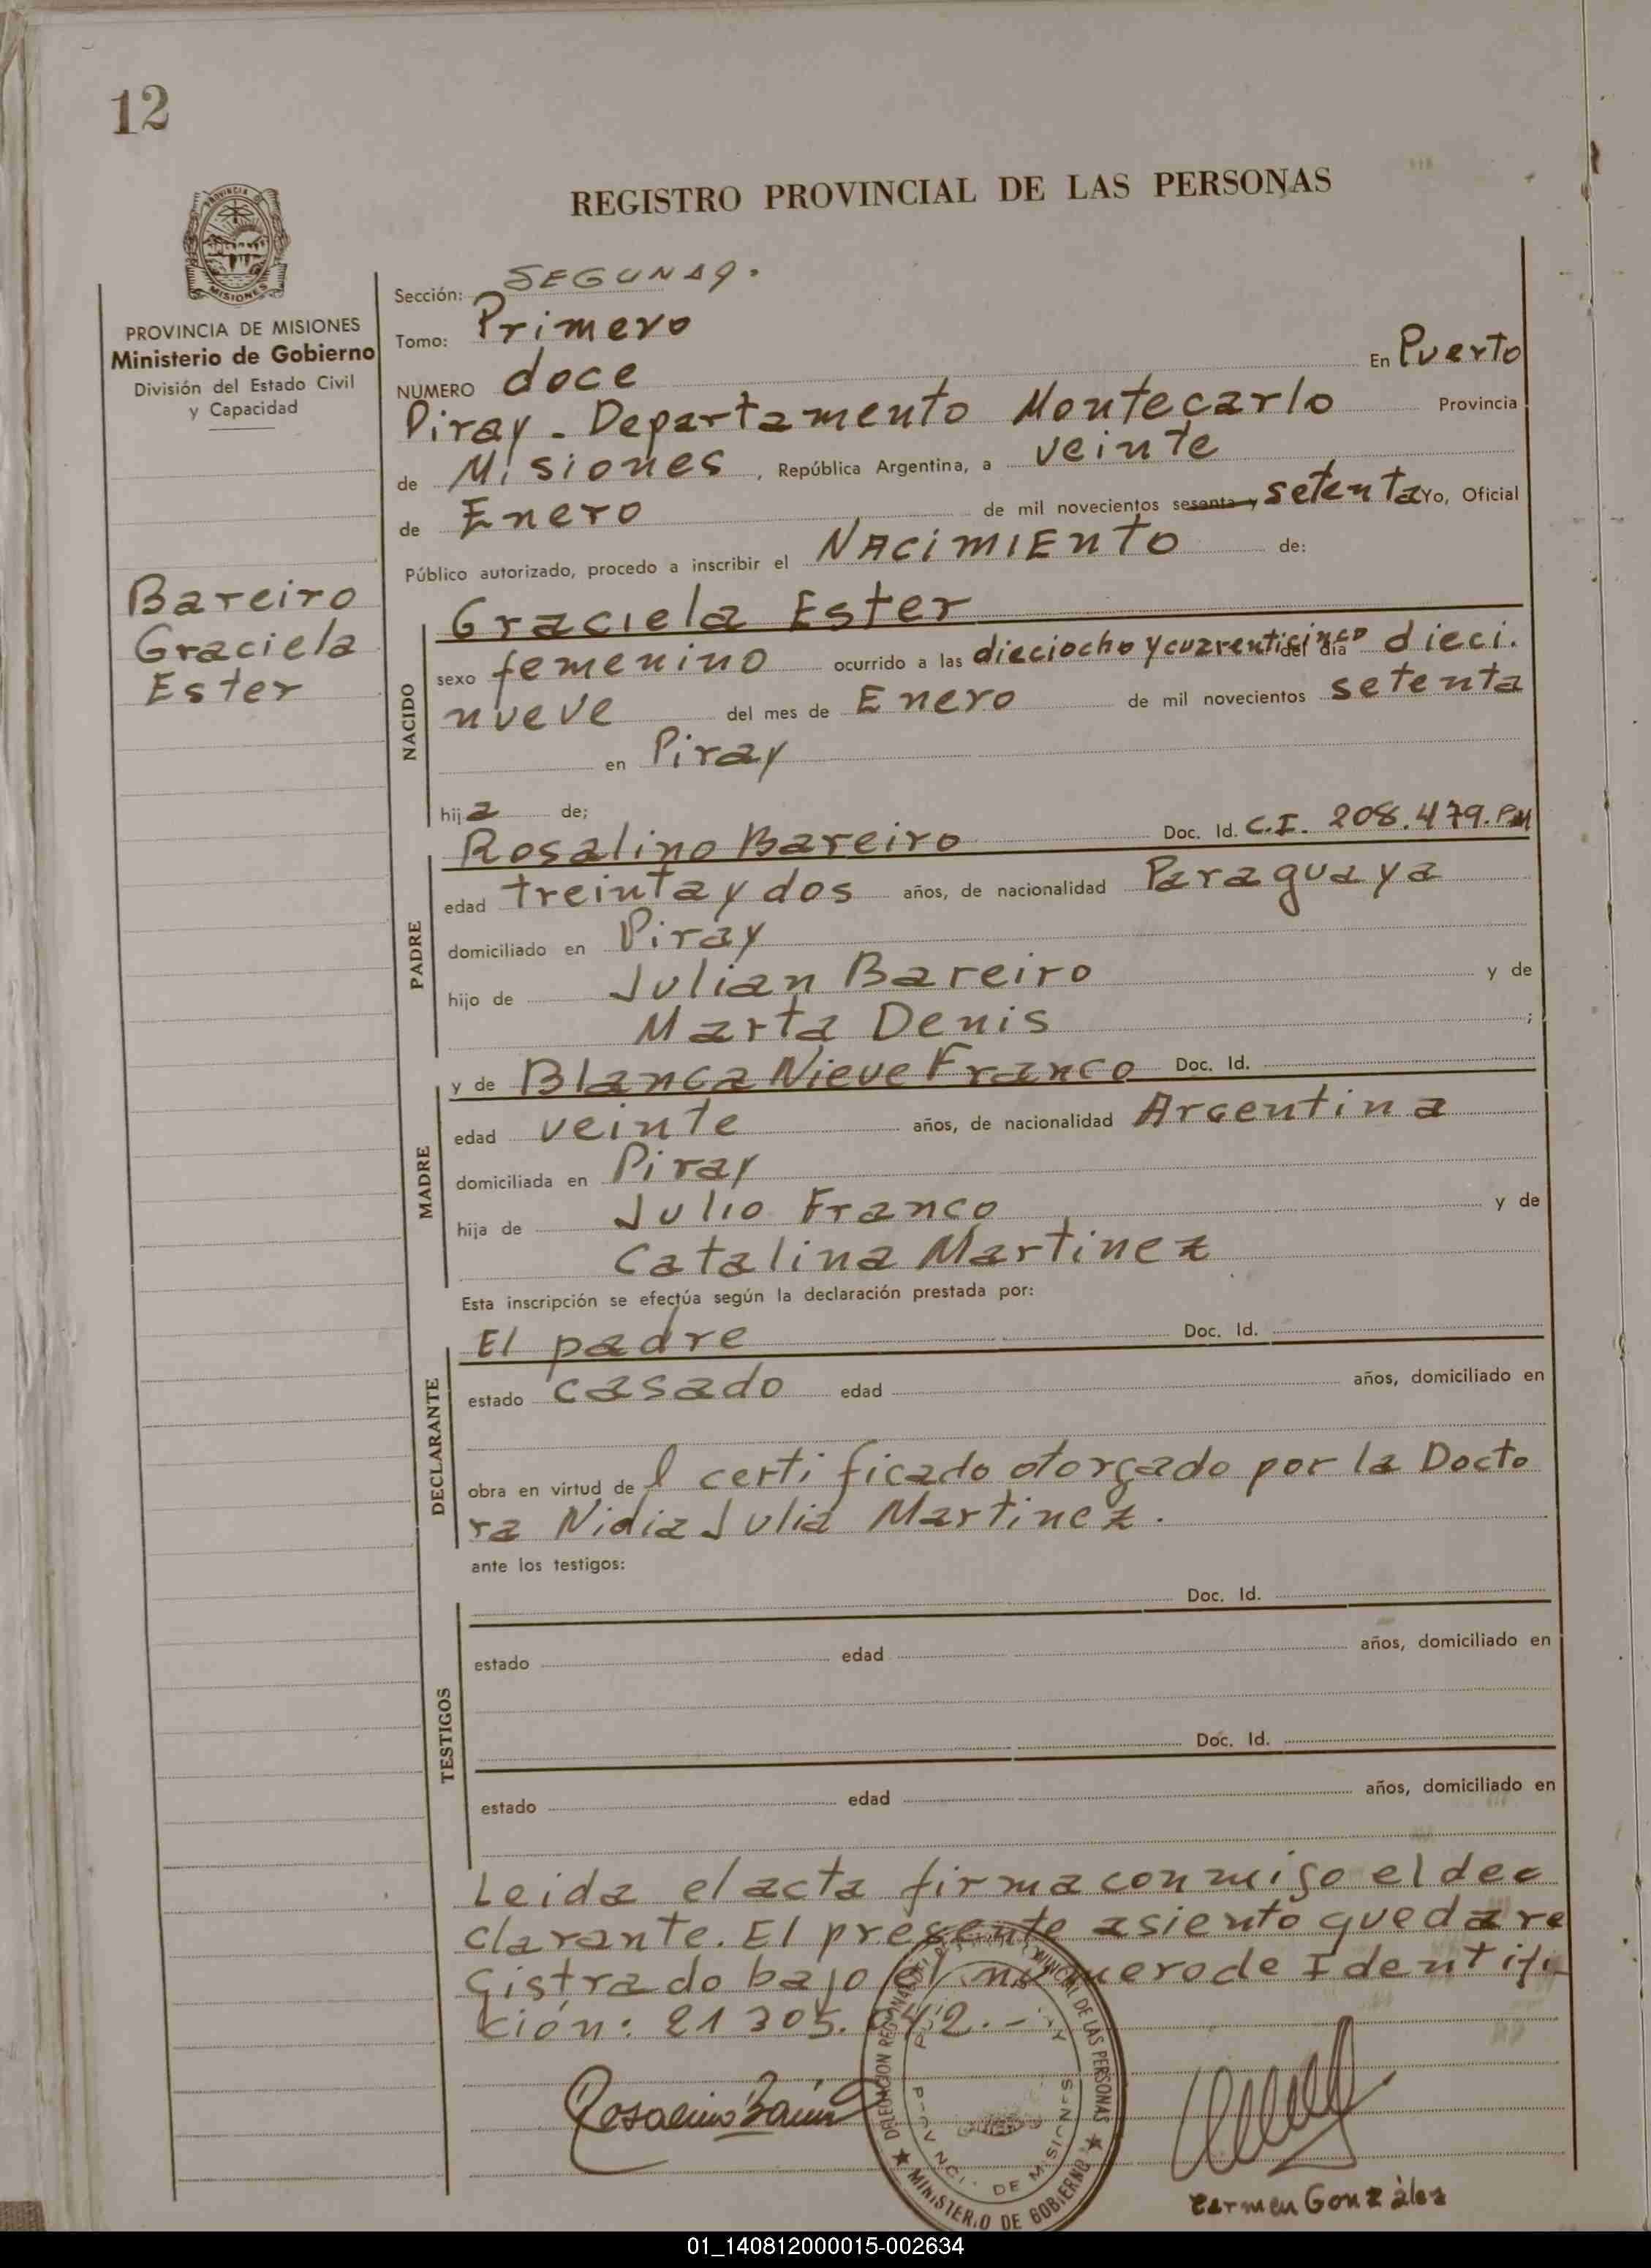 12
REGISTRO PROVINCIAL DE LAS PERSONAS
PROVINCIA
MISIONES
PROVINCIA DE MISIONES
Ministerio de Gobierno
División del Estado Civil
y Capacidad
Bareiro
Graciela
Ester
Sección: SEGUNDA.
Tomo: Primero
NUMERO doce En Puerto
Piray - Departamento Montecarlo Provincia
de Misiones, República Argentina, a veinte
de Enero de mil novecientos sesenta y setenta Yo, Oficial
Público autorizado, procedo a inscribir el NACIMIENTO de:
NACIDO
Graciela Ester
sexo femenino ocurrido a las dieciocho y cuarenticinco del día dieci.
nueve del mes de Enero de mil novecientos setenta
en Piray
hija de;
PADRE
Rosalino Bareiro Doc. Id. C.I. 208.479.PM
edad treinta y dos años, de nacionalidad Paraguaya
domiciliado en Piray
hijo de Julian Bareiro y de
Marta Denis ;
MADRE
y de Blanca Nieve Franco Doc. Id.
edad veinte años, de nacionalidad Argentina
domiciliada en Piray
hija de Julio Franco y de
Catalina Martinez
Esta inscripción se efectúa según la declaración prestada por:
DECLARANTE
El padre Doc. Id.
estado casado edad años, domiciliado en
obra en virtud del certificado otorgado por la Docto
ra Nidia Julia Martinez.
ante los testigos:
TESTIGOS
Doc. Id.
estado edad años, domiciliado en
Doc. Id.
estado edad años, domiciliado en
Leida el acta firma conmigo el dec
clarante. El presente asiento queda re
gistrado bajo el numero de Identifi
ción: 21 305.
Rosalino
DELEGACION PROVINCIAL DE LAS PERSONAS
PROVINCIA DE MISIONES
MINISTERIO DE GOBIERNO
Carmen Gonzàlez
01_140812000015-002634